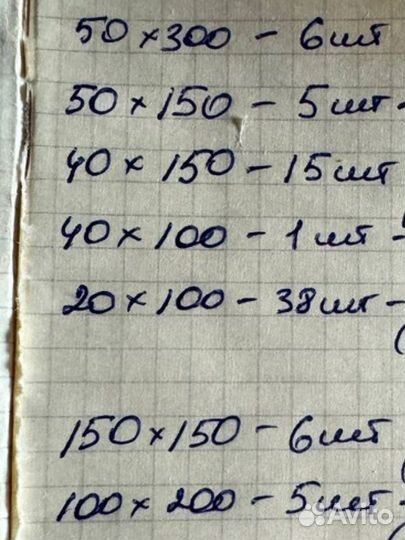 50×300 - 6шт
50×150 - 5шт-
40×150 - 15шт
40×100 - 1шт -
20×100 - 38шт -
(
150×150 - 6шт
(
100×200 - 5шт-
(
Avito